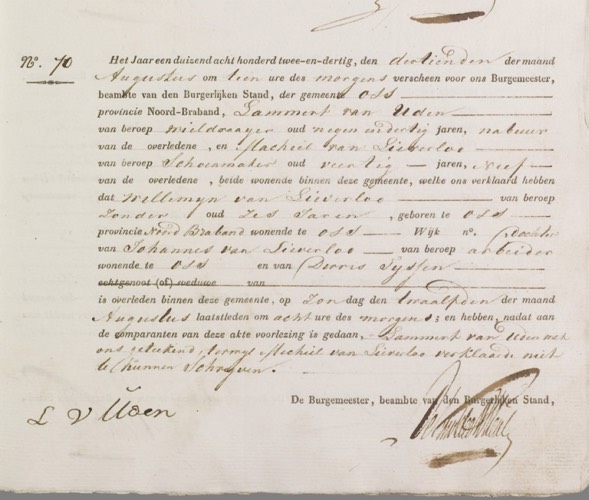 No. 70 Het Jaar een duizend acht honderd twee-en-dertig, den dertienden der maand
Augustus om tien ure des morgens verscheen voor ons Burgemeester,
beambte van den Burgerlijken Stand, der gemeente Oss
provincie Noord-Braband, Lammert van Uden
van beroep wieldraayer oud negen in dertig jaren, nabuur
van de overledene, en Machiel van Lieverloo
van beroep Schoenmaker oud veertig jaren, Neef
van de overledene, beide wonende binnen deze gemeente, welke ons verklaard hebben
dat Willemyn van Lieverloo van beroep
Zonder oud Zes Jaren, geboren te Oss
provincie Noord Braband wonende te Oss Wijk no. Dochter
van Johannes van Lieverloo van beroep arbeider
wonende te Oss en van Dorris Tyssen
echtgenoot (of) weduwe van
is overleden binnen deze gemeente, op Zondag den twaalfden der maand
Augustus laatstleden om acht ure des morgens; en hebben, nadat aan
de comparanten van deze akte voorlezing is gedaan, Lammert van Uden met
ons getekend, terwyl Machiel van Lieverloo verklaarde niet
te kunnen Schryven.
De Burgemeester, beambte van den Burgerlijken Stand,
L V Uden